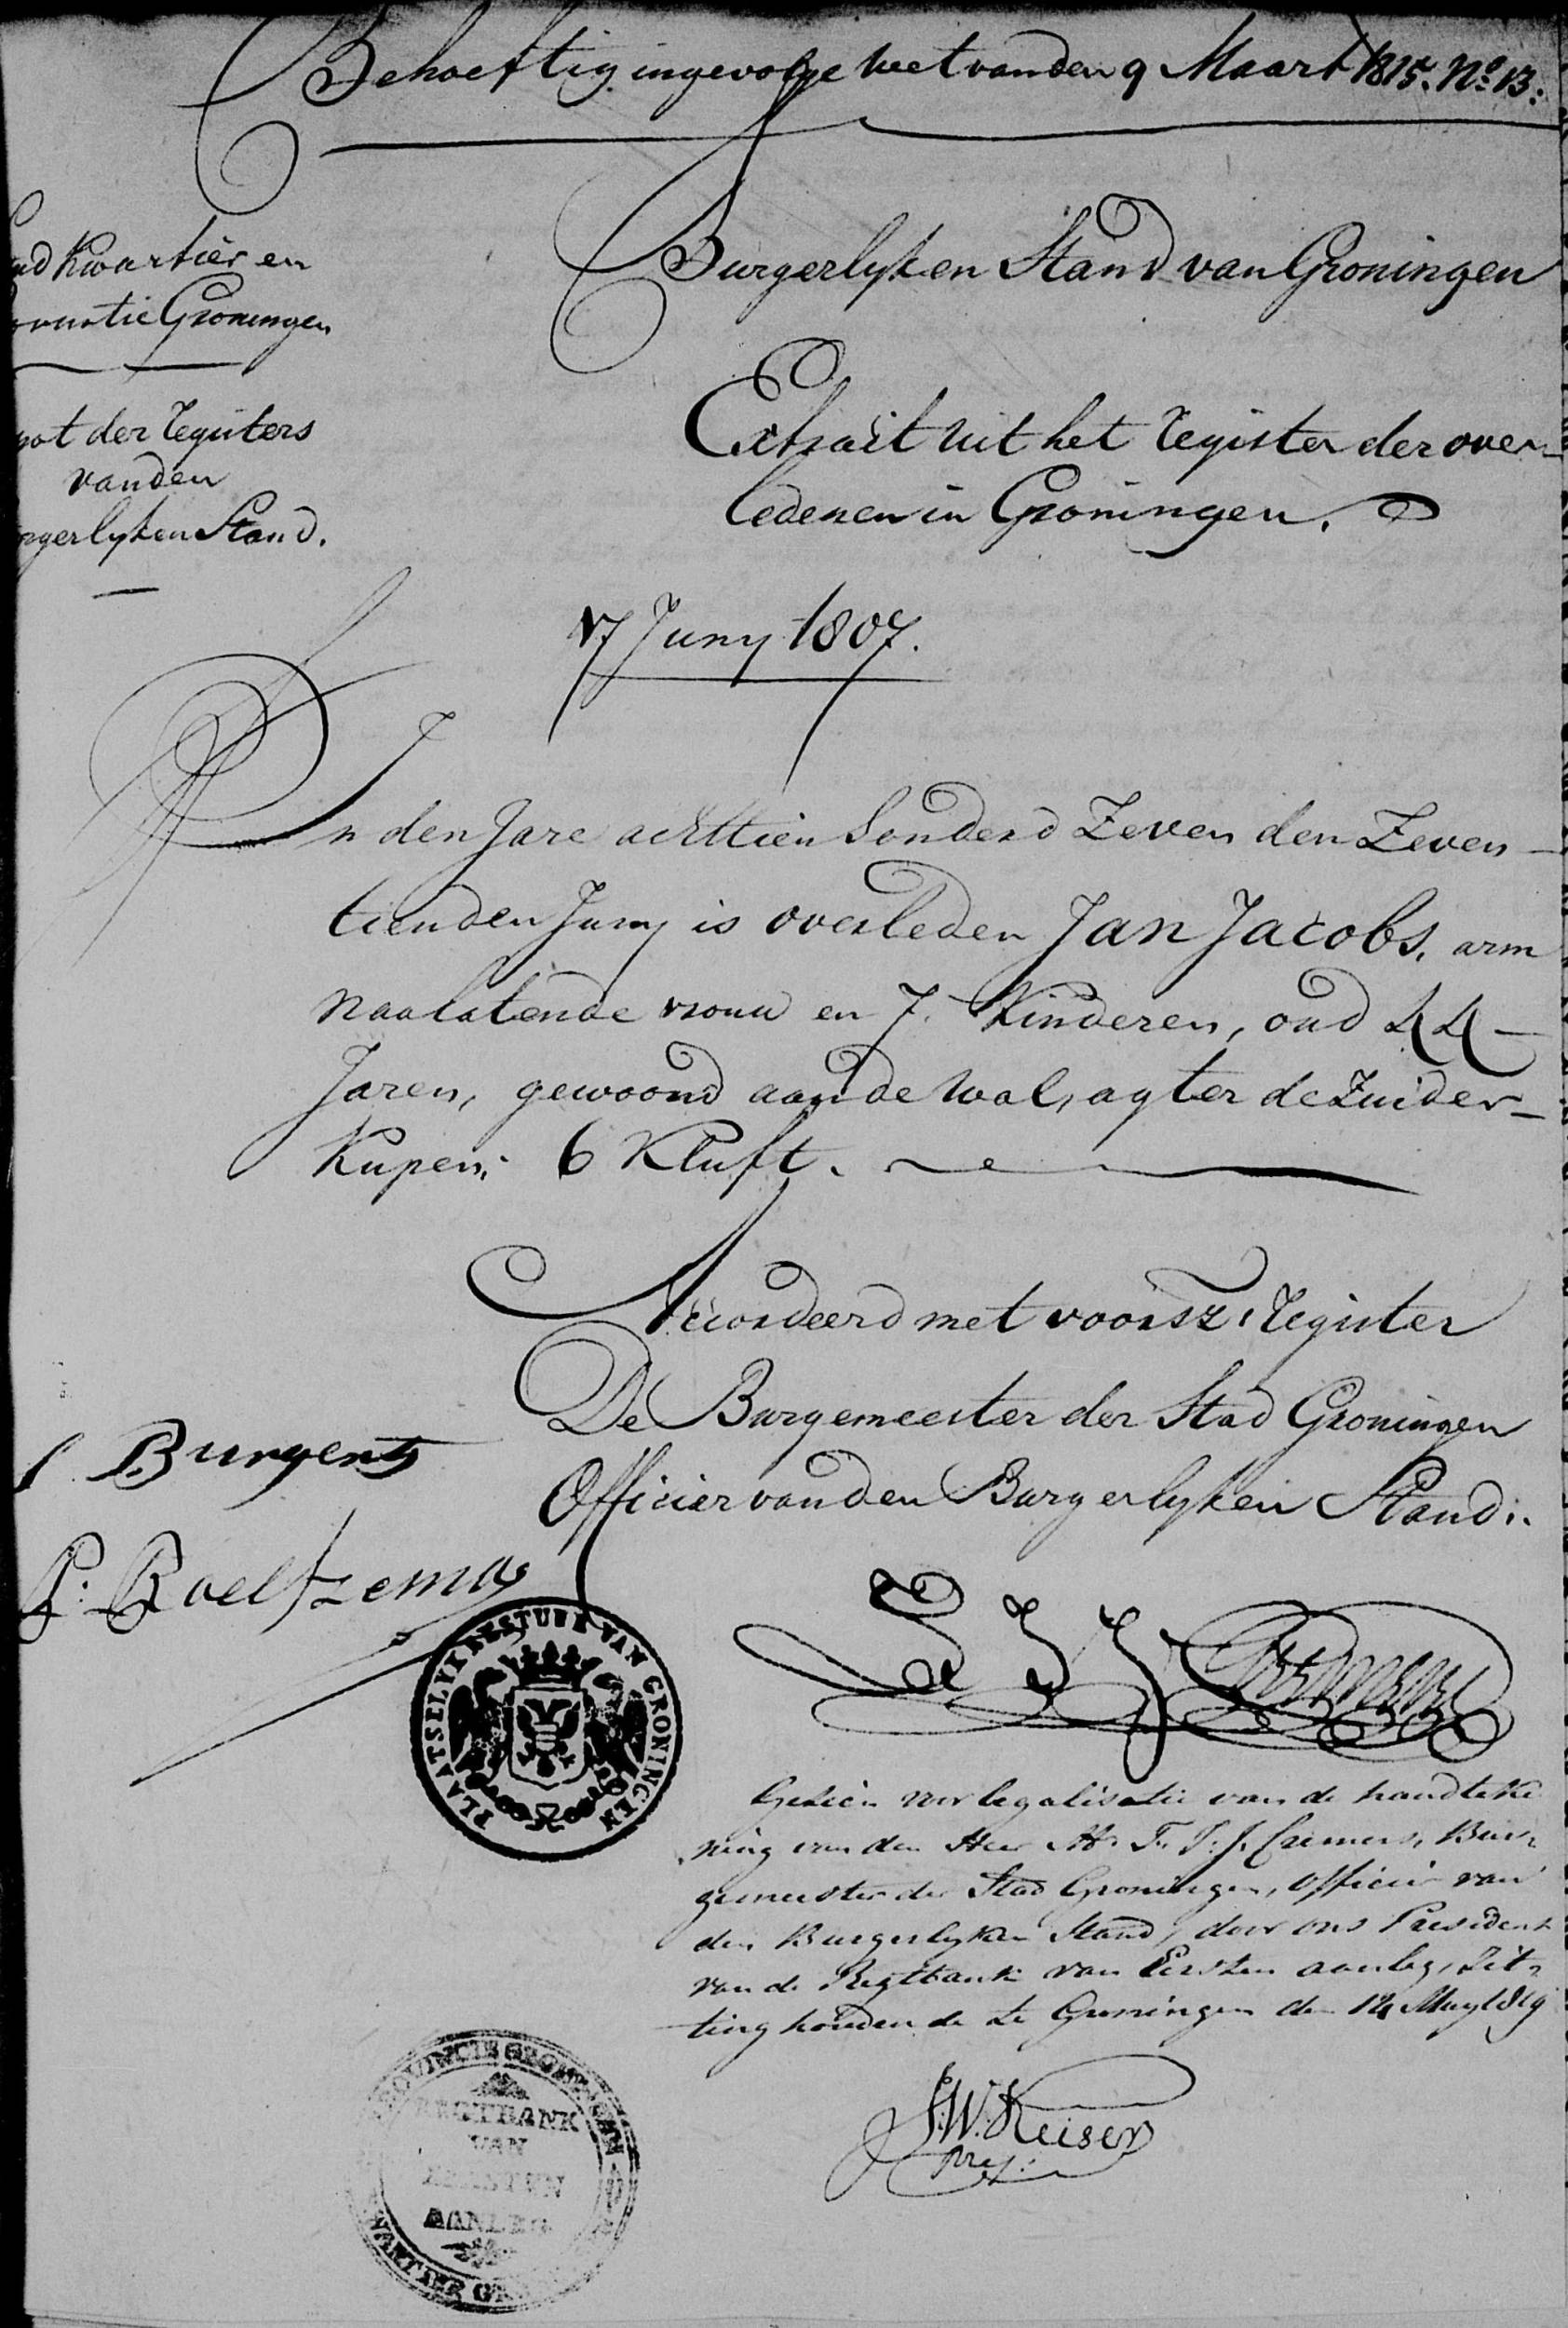 Behoeftig ingevolge wet van den 9 Maart 1815. No. 13:
Burgerlyken Stand van Groningen
Kwartier en
Groningen
der registers
van den
Stand.
Extract uit het register der over-
ledenen in Groningen.
17 Juny 1807.
In den Jare achttien honderd Zeven den Zeven-
tienden Juny is overleden Jan Jacobs, arm
naalatende vrouw en 7. Kinderen, oud 44-
Jaren, gewoond aan de wal, agter de Zuider-
Kupen; 6 Kluft.
Accordeerd met voorsz. register
De Burgemeester der Stad Groningen
Officier van den Burgerlyken Stand:
Burgers
P: Roelfzema
PLAATSELYK BESTUUR VAN GRONINGEN
Gezien voor legalisatie van de handteke
ning van den Heer Mr. F. J. J. Cremers, Bur-
gemeester der Stad Groningen, Officier van
den Burgerlyken Stand, door ons President
van de Regtbank van Eersten aanleg, Zit-
ting houdende te Groningen den 14 May 1819
J.W. Keiser
Pres:
PROVINCIE GRONINGEN
REGTBANK
VAN
EERSTEN
AANLEG